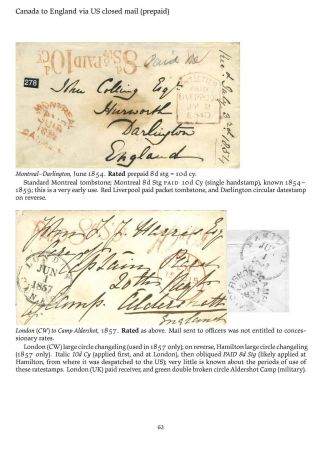 Canada to England via US closed mail (prepaid)
8d Stg PAID 10d Cy
Paid
278
John Colling Esqr
Hurworth
Darlington
England
MONTREAL
PAID
LIVERPOOL
Montreal–Darlington, June 1854. Rated prepaid 8d stg = 10d cy.
Standard Montreal tombstone; Montreal 8d Stg PAID 10d Cy (single handstamp), known 1854–
1859; this is a very early use. Red Liverpool paid packet tombstone, and Darlington circular datestamp
on reverse.
Captain
20th
Camp Aldershott
England
JUN
1857
London (CW) to Camp Aldershot, 1857. Rated as above. Mail sent to officers was not entitled to conces-
sionary rates.
London (CW) large circle changeling (used in 1857 only); on reverse, Hamilton large circle changeling
(1857 only). Italic 10d Cy (applied first, and at London), then obliqued PAID 8d Stg (likely applied at
Hamilton, from where it was despatched to the US); very little is known about the periods of use of
these ratestamps. London (UK) paid receiver, and green double broken circle Aldershot Camp (military).
63